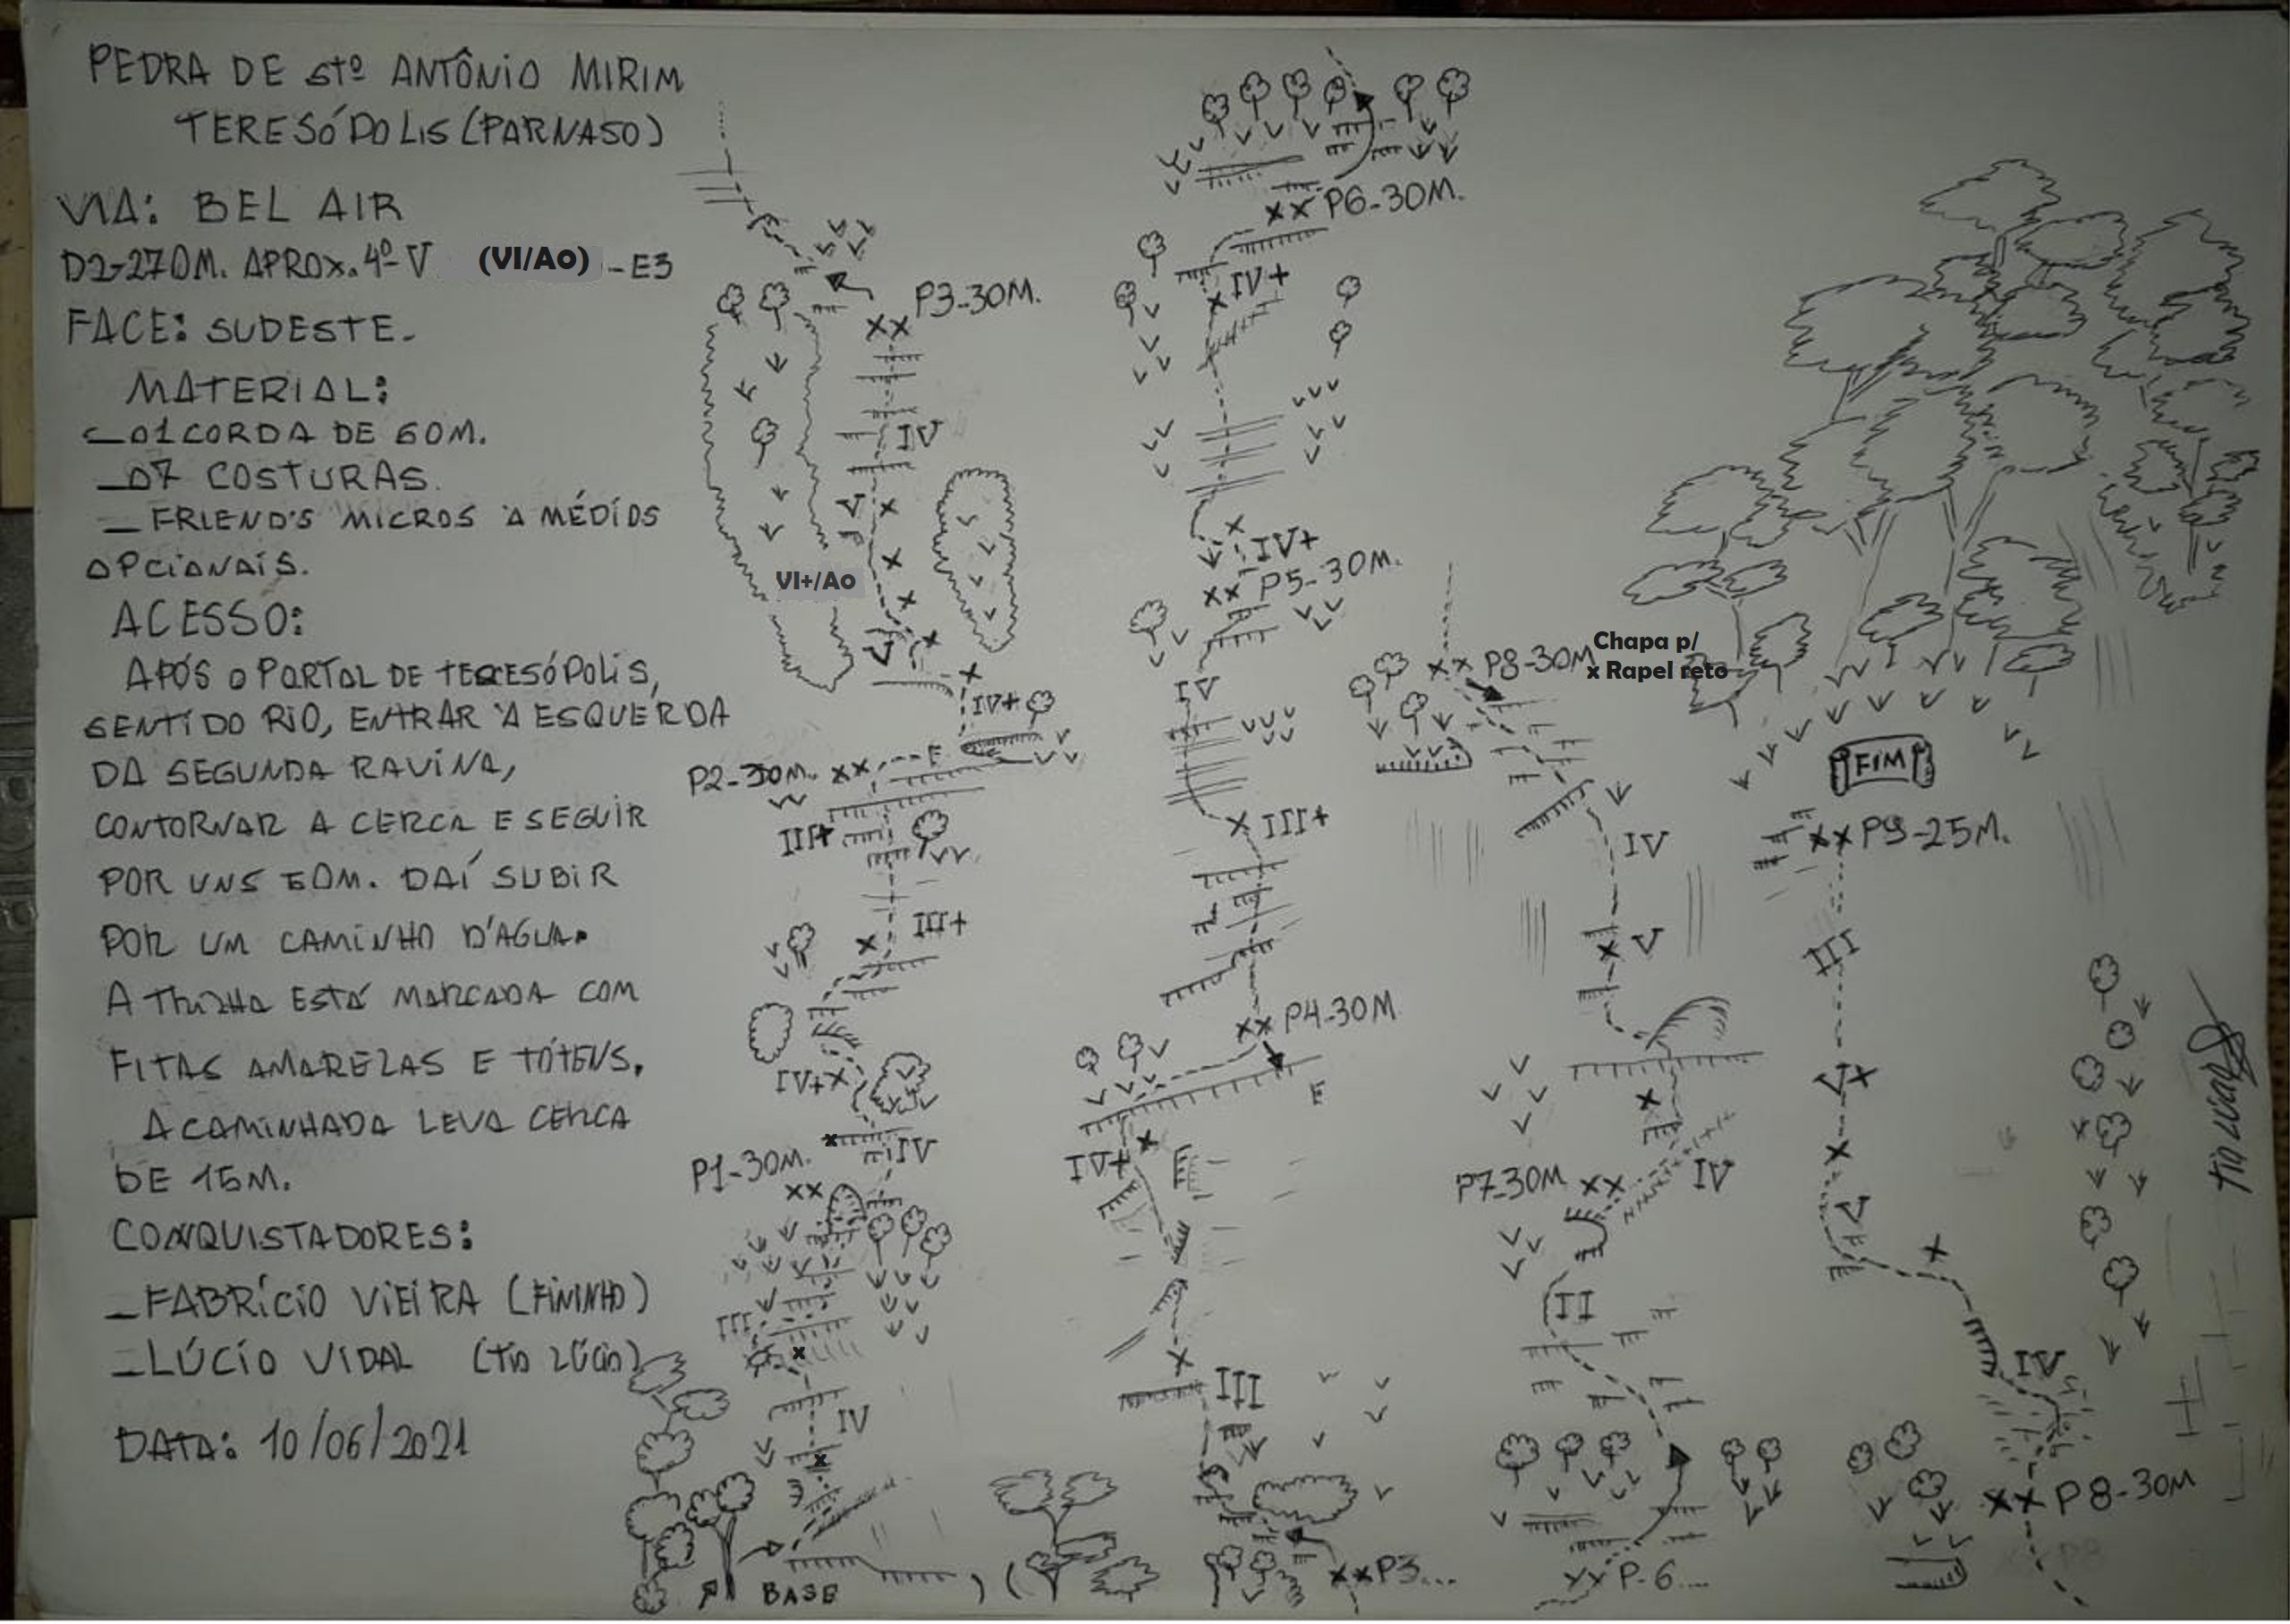 PEDRA DE STº ANTÔNIO MIRIM
TERESÓPOLIS (PARNASO)
VIA: BEL AIR
D2-270M. APROX. 4º V (VI/A0) - E3
FACE: SUDESTE.
MATERIAL:
_01 CORDA DE 60M.
_07 COSTURAS.
_ FRIEND'S MICROS À MÉDIOS
OPCIONAIS.
ACESSO:
APÓS O PORTAL DE TERESÓPOLIS,
SENTIDO RIO, ENTRAR À ESQUERDA
DA SEGUNDA RAVINA,
CONTORNAR A CERCA E SEGUIR
POR UNS 50M. DAÍ SUBIR
POR UM CAMINHO D'AGUA.
A TRILHA ESTÁ MARCADA COM
FITAS AMARELAS E TÓTENS.
A CAMINHADA LEVA CERCA
DE 15M.
CONQUISTADORES:
_FABRÍCIO VIEIRA (FININHO)
_LÚCIO VIDAL (TIO LÚCIO)
DATA: 10/06/2021
P3-30M.
XX
IV
V
VI+/A0
V
IV+
P2-30M. XX
E
III+
III+
IV+
IV
P1-30M.
XX
III
IV
BASE
XX P6-30M.
IV+
IV+
XX P5-30M.
IV
III+
XX P4-30M
E
IV+
III
XX P3...
XX P8-30M
Chapa p/
x Rapel reto
IV
V
P7-30M XX
IV
II
XX P-6...
FIM
XX P9-25M.
III
V+
V
IV
XX P8-30M
Tio Lúcio